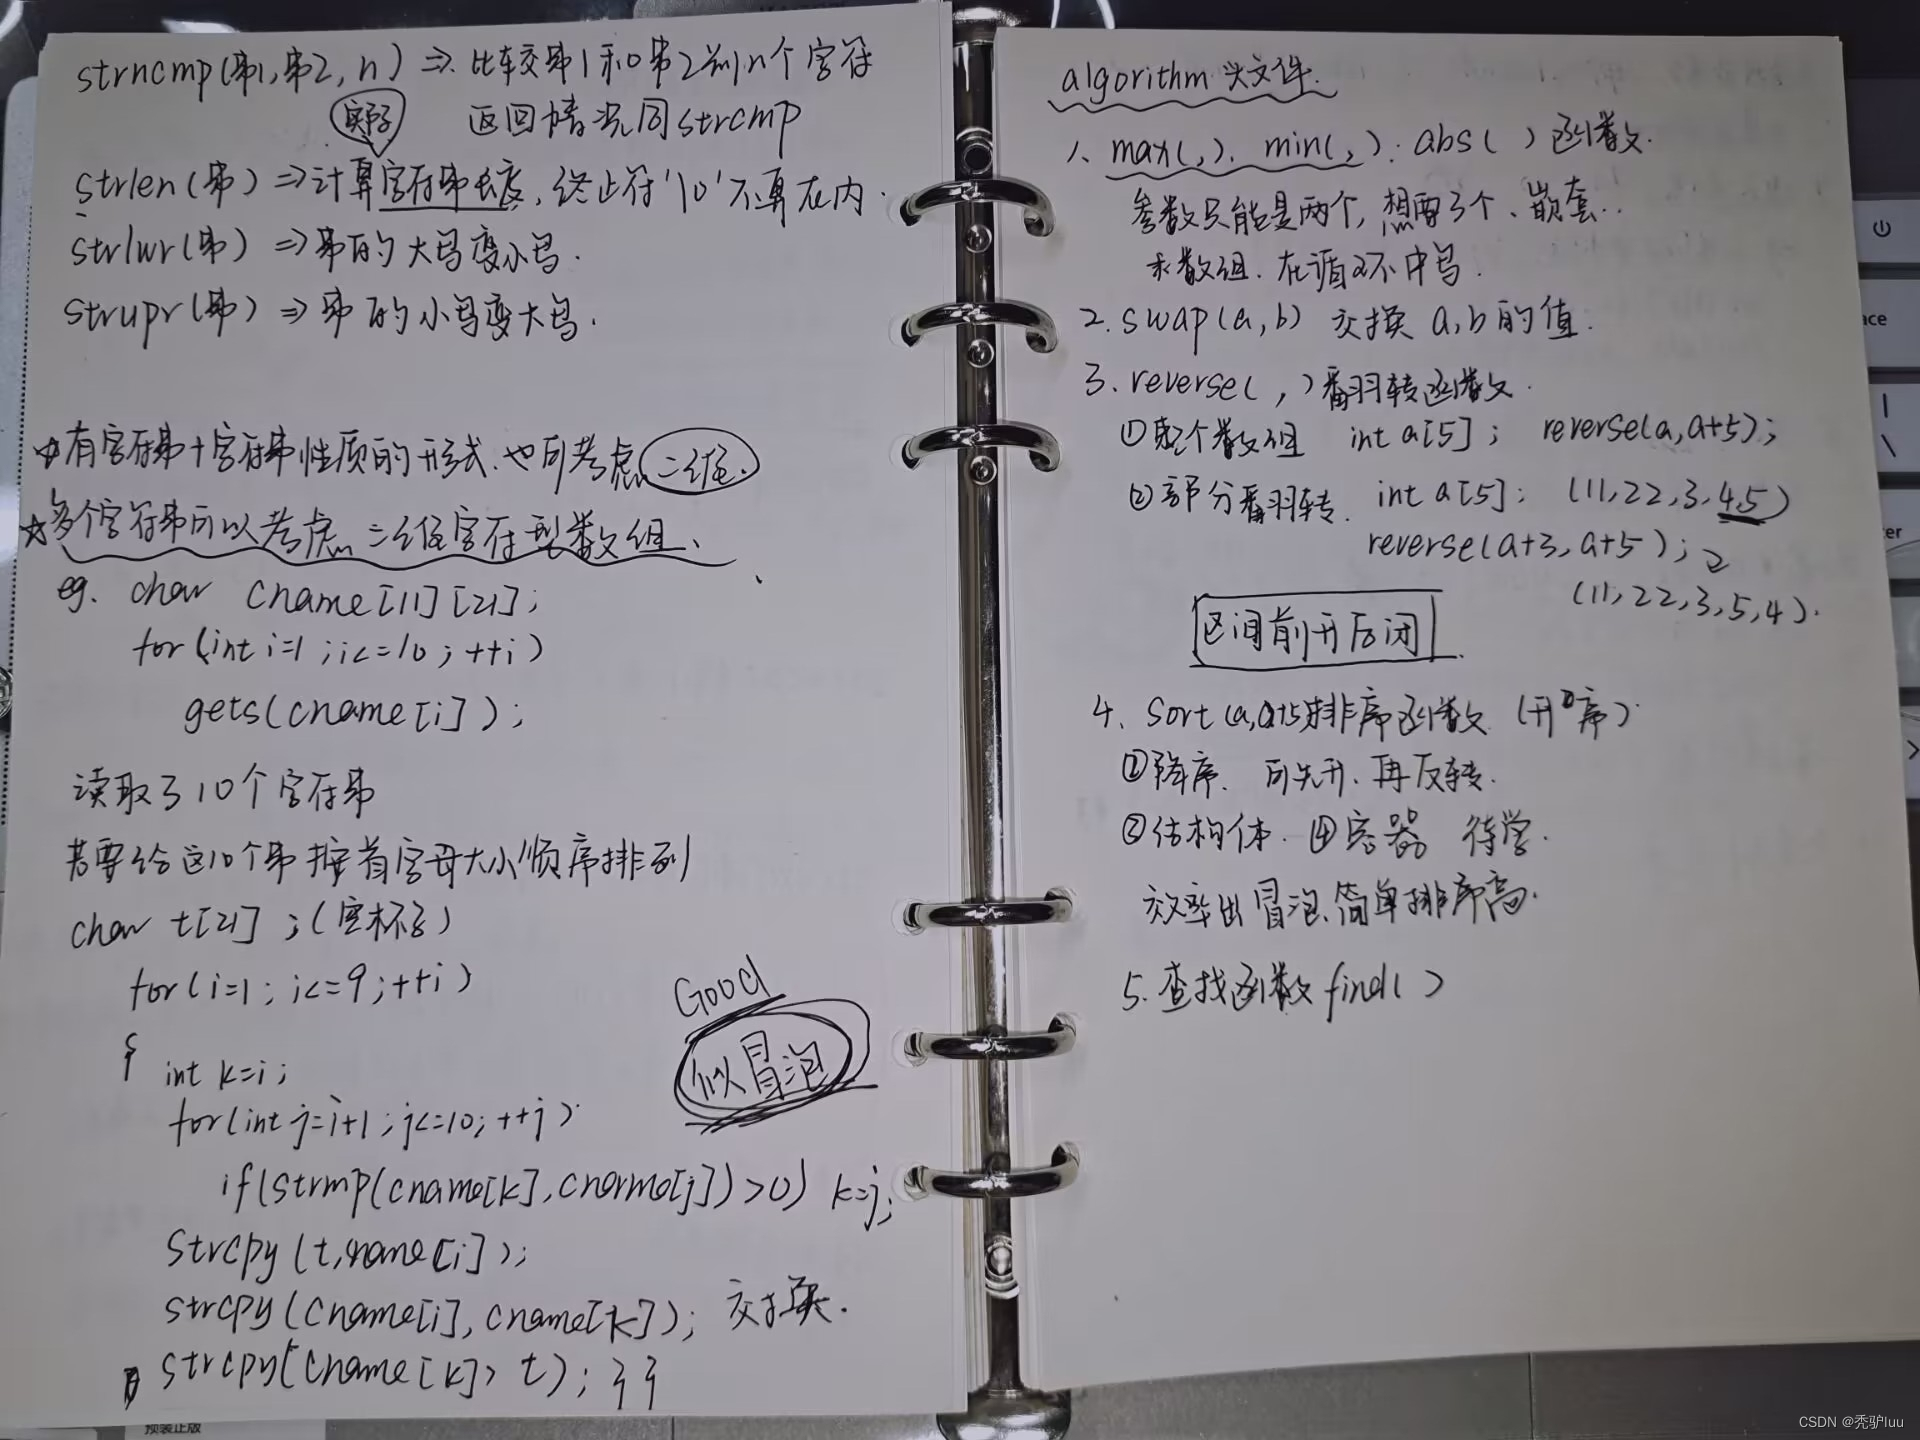 strncmp(串1,串2,n) => 比较串1和串2前n个字符
实际
返回情况同strcmp
strlen(串) => 计算字符串长度,终止符'\0'不算在内.
strlwr(串) => 串的大写变小写.
strupr(串) => 串的小写变大写.
☆有字符串+字符串性质的形式.也可考虑二维.
☆多个字符串可以考虑二维字符型数组、
eg. char cname[11][21];
for(int i=1;i<=10;++i)
gets(cname[i]);
读取了10个字符串
若要给这10个串按首字母大小顺序排列
char t[21];(空杯子)
for(i=1;i<=9;++i)
{
int k=i;
for(int j=i+1;j<=10;++j)
if(strmp(cname[k],cname[j])>0) k=j;
Good
似冒泡
strcpy(t,cname[i]);
strcpy(cname[i],cname[k]); 交换.
strcpy(cname[k],t);}}
algorithm头文件.
1、max(,). min(,). abs( )函数.
参数只能是两个,想要3个、嵌套..
求数组.在循环中写.
2.swap(a,b) 交换a,b的值.
3.reverse( , )翻转函数.
①整个数组 int a[5]; reverse(a,a+5);
②部分翻转. int a[5]; (11,22,3,4,5)
reverse(a+3,a+5);
(11,22,3,5,4).
区间前开后闭
4、sort(a,a+5)排序函数(升序)
②降序. 可先升.再反转.
③结构体. ④容器 待学.
效率比冒泡、简单排序高.
5.查找函数find( )
预装正版
CSDN @秃驴luu